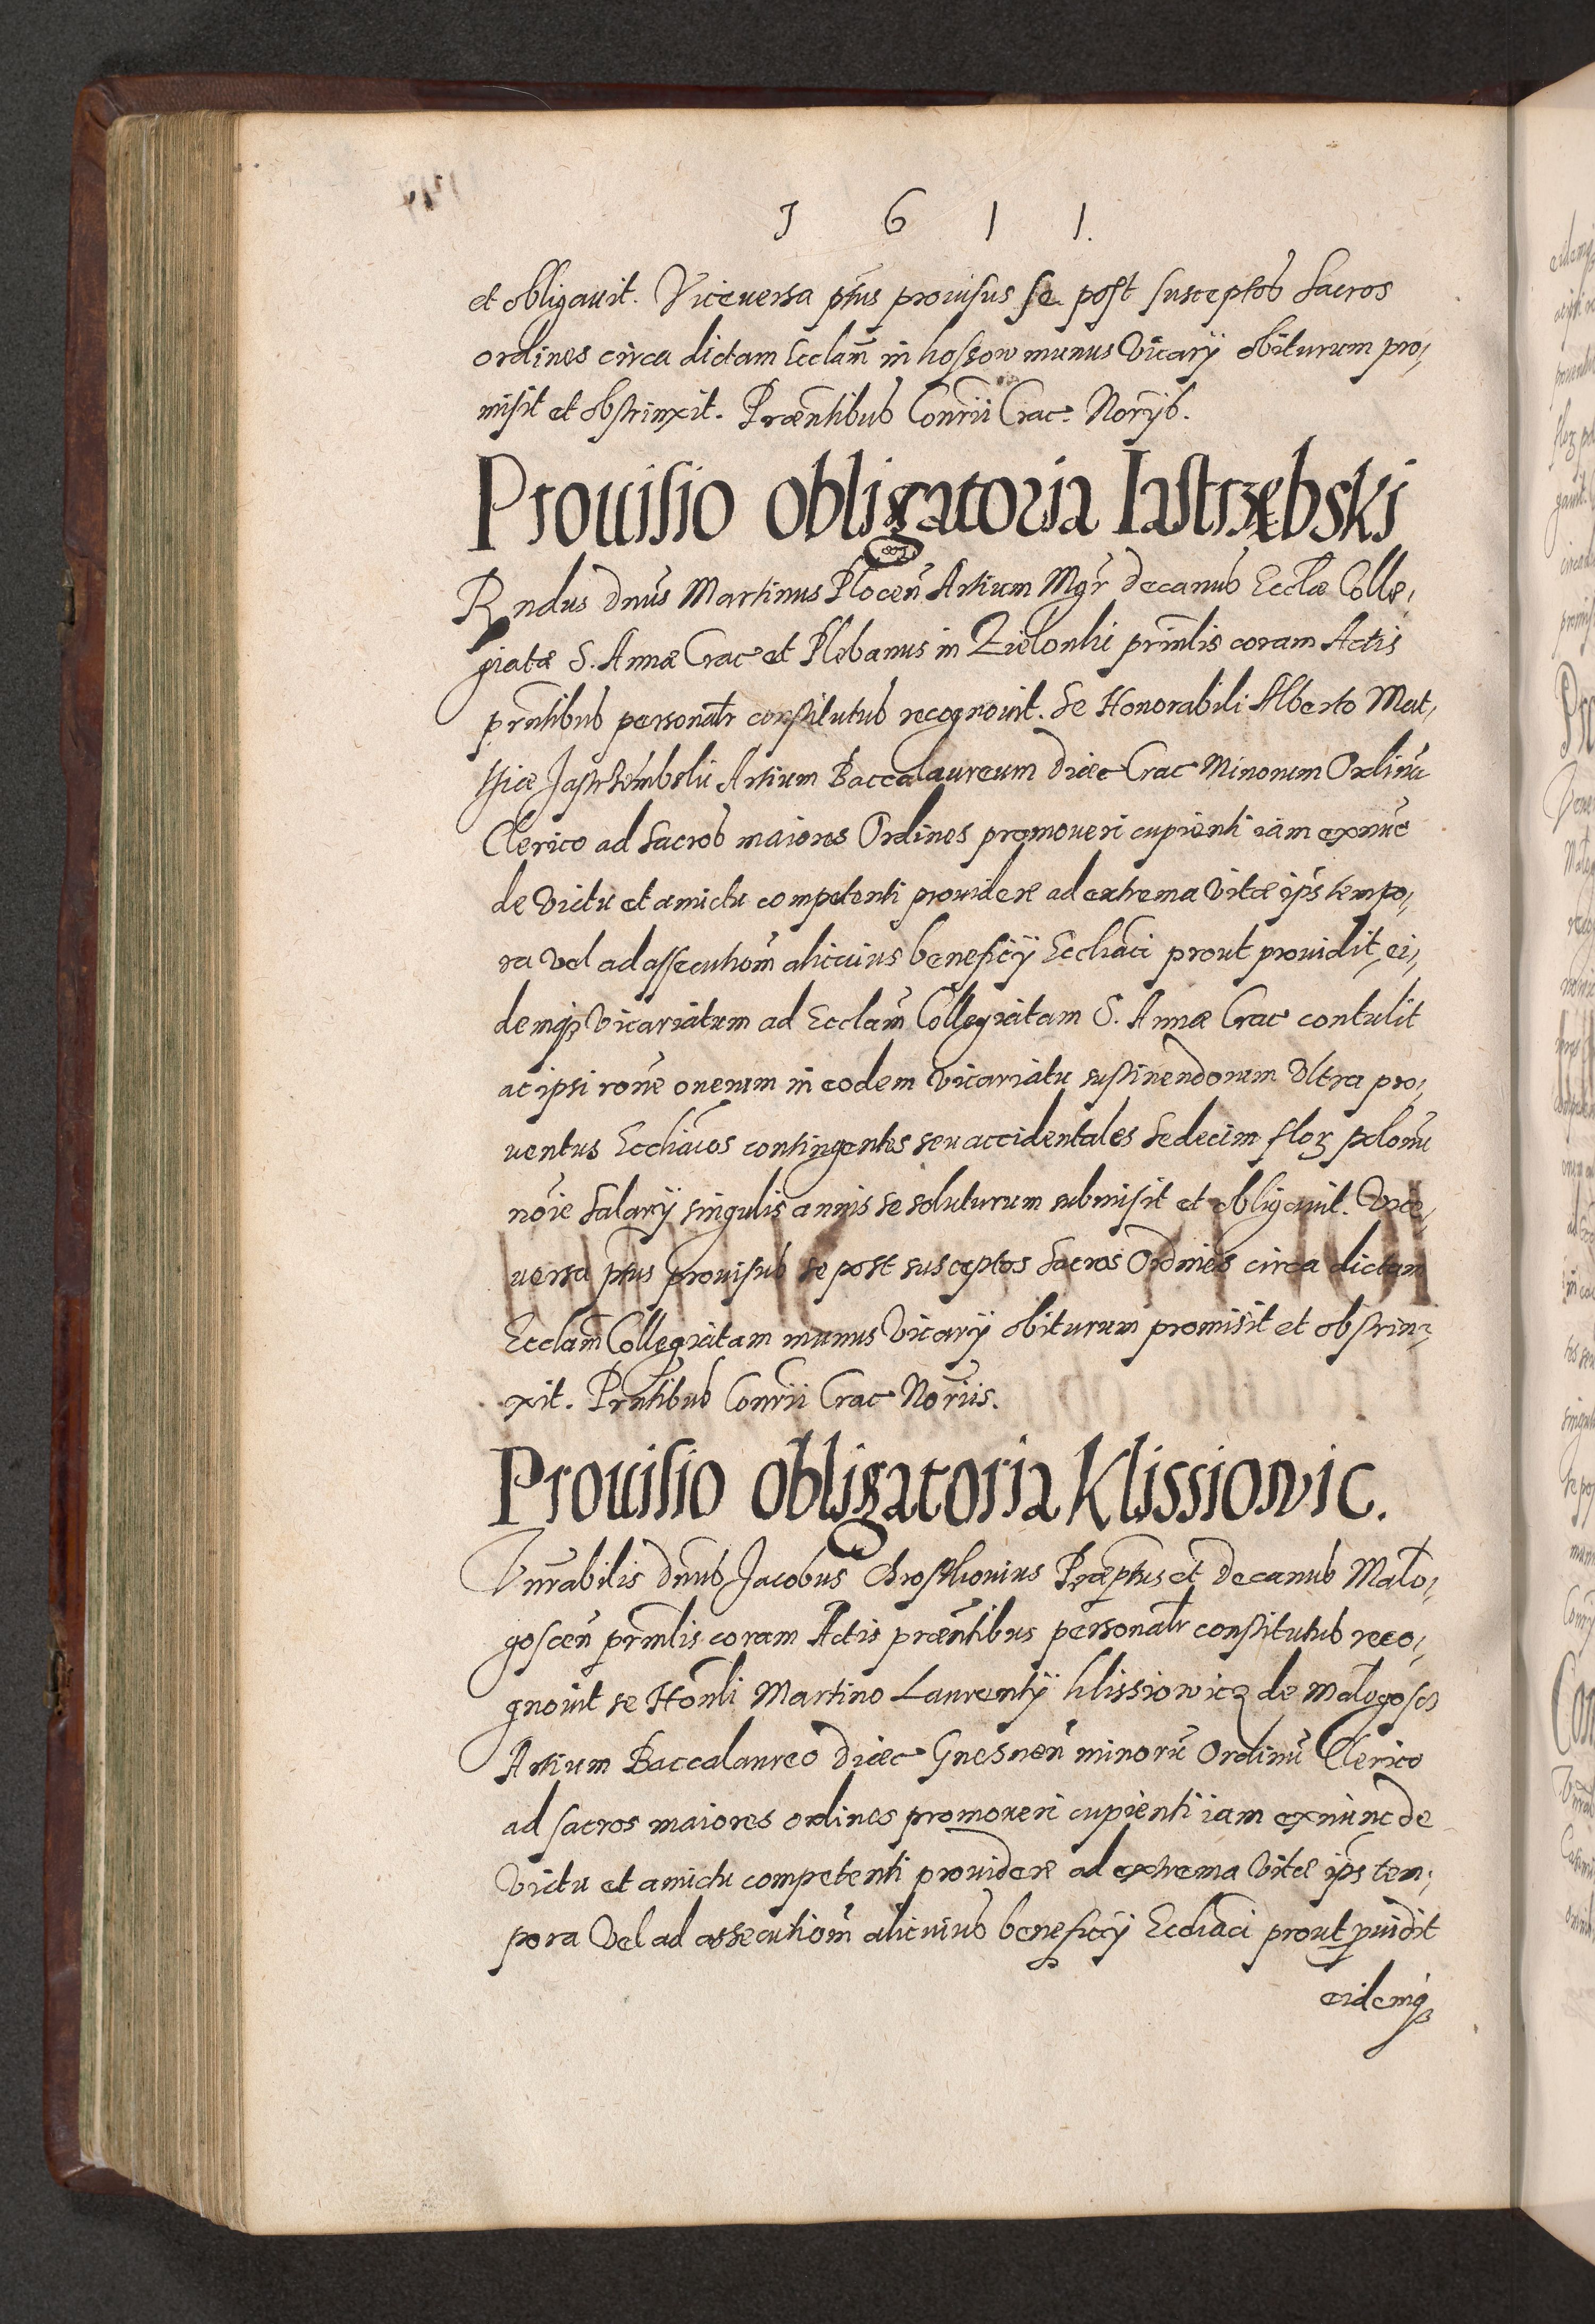 1 6 1 1.
et obligauit. Viceuersa pñus prouisus se post susceptos Sacros
ordines circa dictam Ecclam̃ in Kossow munus Vicarÿ obiturum pro,
misit et obstrinxit. Præntibus Consrii Crac. Norÿs.
Prouisio obligatoria Iastrzębski
Rndus Dnũs Martinus Plocen̄ Artium Mgr̃ Decanus Ecclæ Colle,
giatæ S. Annæ Crac et Plebanus in Zielonki prinlis coram Actis
prntibus personalr constitutus recognouit. Se Honorabili Alberto Mat,
thiæ Jastrzembski Artium Baccalaureum Diæc Crac Minorum Ordinũ
Clerico ad Sacros maiores Ordines promoueri cupienti iam exnũc
de Victu et amictu competenti prouidere ad extrema Vitæ ips tempo,
ra Vel ad assecutiom̃ alicuius beneficÿ Eccliaci prout prouidit, ei,
demqȝ Vicariatum ad Ecclam̃ Collegiatam S. Annæ Crac contulit
ac ipsi rone onerum in eodem Vicariatu sustinendorum Vltra pro,
uentus Eccliacos contingentes seu accidentales Sedecim flor polonũ
noĩe Salarÿ singulis annis se soluturum submisit et obligauit. Vice,
uersa pñus prouisus se post susceptos Sacros Ordines circa dictam
Ecclam̃ Collegiatam munus Vicarÿ obiturum promisit et obstrin,
xit. Prntibus Consrii Crac Noriis.
Prouisio obligatoria Klissiowic.
Vnrabilis Dnus Jacobus Chrostkouius Præptus et Decanus Mało,
goscen̄ prinlis coram Actis præntibus personalr constitutus reco,
gnouit se Honli Martino Laurentÿ Klissiowicz de Małogoscz
Artium Baccalaureo Diæc Gnesnen̄ minorũ Ordinũ Clerico
ad sacros maiores ordines promoueri cupienti iam exnunc de
Victu et amictu competenti prouidere ad extrema Vitæ ips tem,
pora Vel ad assecutiom̃ alicuius beneficÿ Eccliaci prout puidit
eidemqȝ